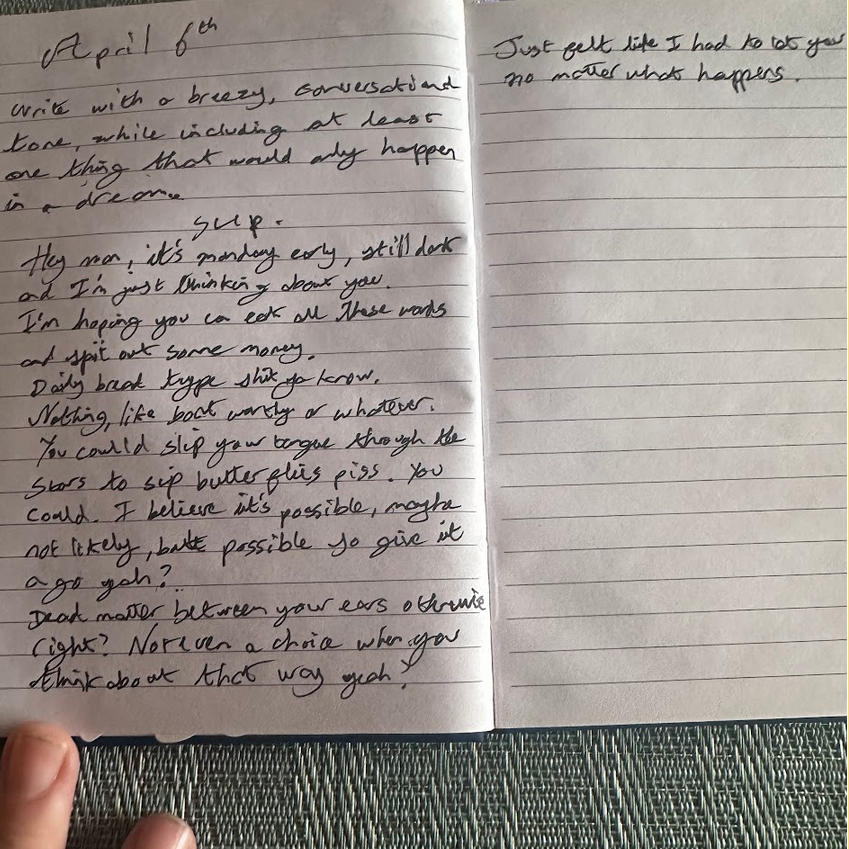 April 6th
Write with a breezy, conversational
tone, while including at least
one thing that would only happen
in a dream.
sup.
Hey man, it's monday early, still dark
and I'm just thinking about you.
I'm hoping you can eat all these words
and spit out some money.
Daily bread type shit ya know.
Nothing, like boat worthy or whatever.
You could slip your tongue through the
stars to sip butterflies piss. You
could. I believe it's possible, maybe
not likely, but possible so give it
a go yah?
Dead matter between your ears otherwise
right? Not even a choice when you
think about that way yeah?
Just felt like I had to let you
no matter what happens.